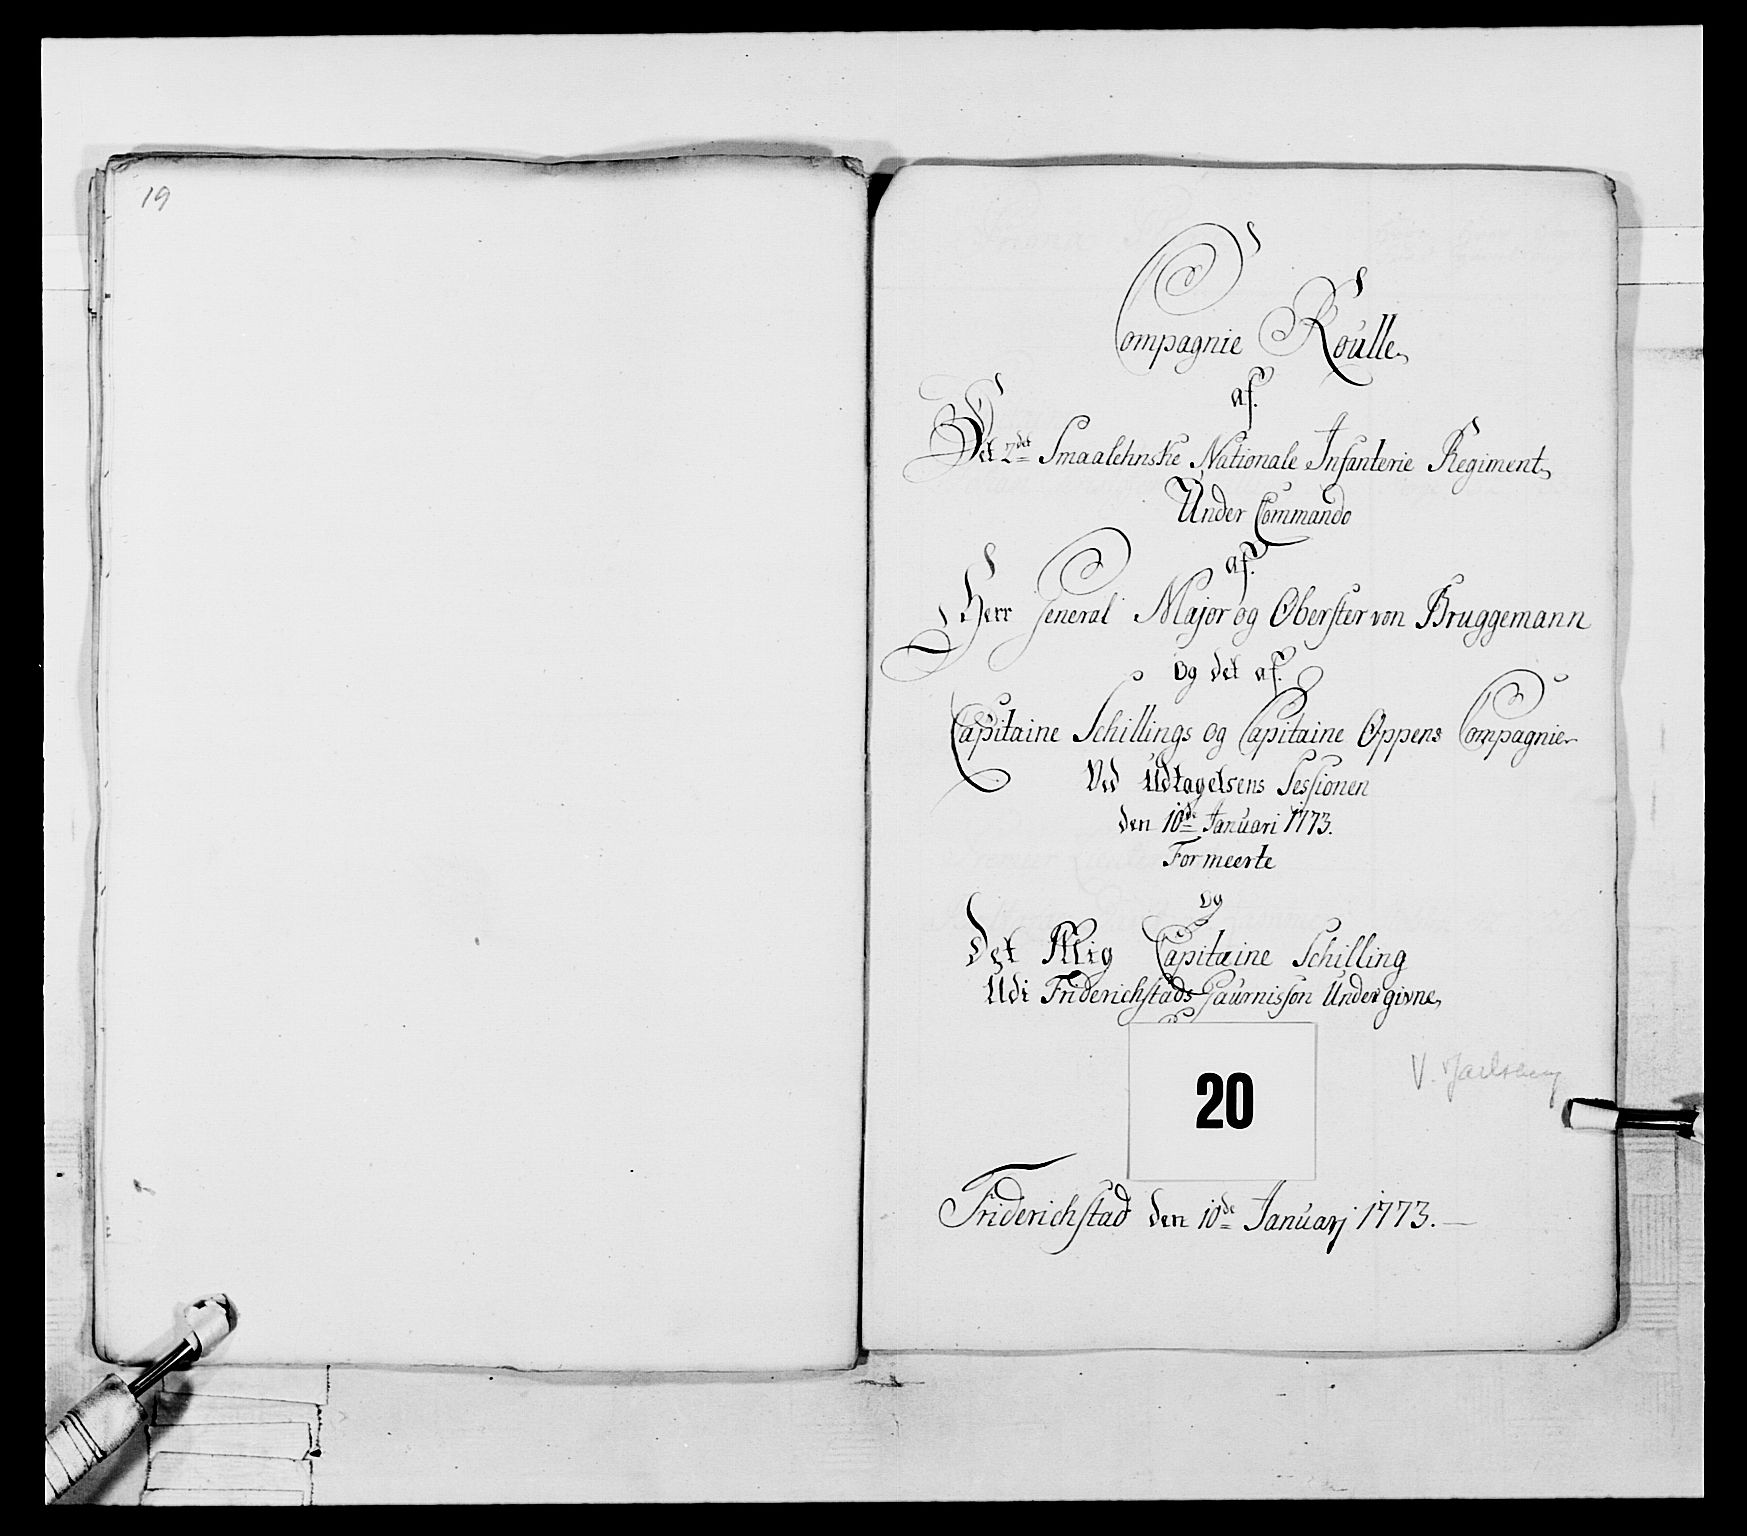 19
Compagnie Roulle,
af.
Det 2det Smaalehnske Nationale Infanterie Regiment,
Under Commando
af.
Herr General Major og Oberster von Bruggemann
Og det af.
Capitaine Schillings og Capitaine Oppens Compagnier
Ved Udtagelsens Sessionen
den 10de Januari 1773.
Formeerte
Og
Det Mig Capitaine Schilling
Udi Friderichstads Gaurnisson Undergivne,
V. Jarlsberg
20
Friderichstad den 10de Januarj 1773.